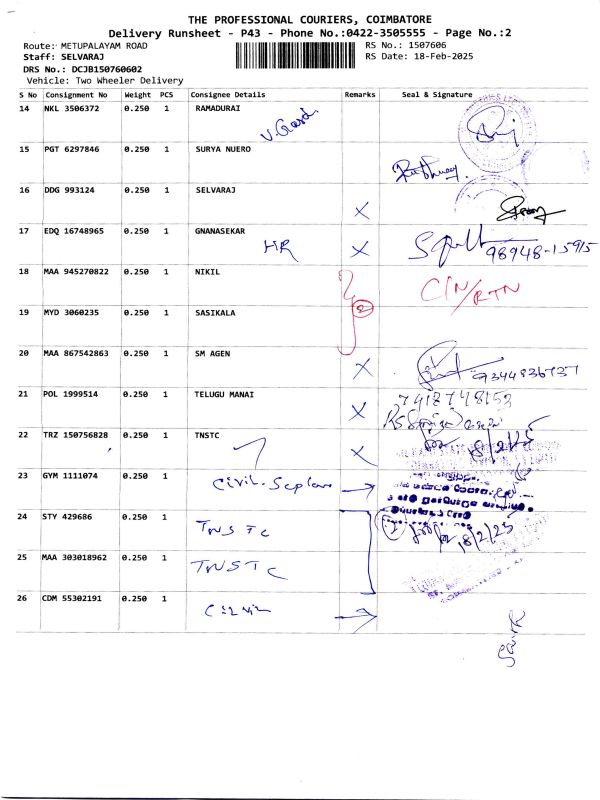 THE PROFESSIONAL COURIERS, COIMBATORE
Delivery Runsheet - P43 - Phone No.:0422-3505555 - Page No.:2
Route: METUPALAYAM ROAD
RS No.: 1507606
Staff: SELVARAJ
RS Date: 18-Feb-2025
DRS No.: DCJB150760602
Vehicle: Two Wheeler Delivery
S No Consignment No Weight PCS Consignee Details Remarks Seal & Signature
14 NKL 3506372 0.250 1 RAMADURAI
15 PGT 6297846 0.250 1 SURYA NUERO
16 DDG 993124 0.250 1 SELVARAJ X
17 EDQ 16748965 0.250 1 GNANASEKAR
HR X 98948-15915
18 MAA 945270822 0.250 1 NIKIL
CIN/RTN
19 MYD 3060235 0.250 1 SASIKALA
2
20 MAA 867542863 0.250 1 SM AGEN X
9344936737
21 POL 1999514 0.250 1 TELUGU MANAI X
7418748153
22 TRZ 150756828 0.250 1 TNSTC X
18/2/25
23 GYM 1111074 0.250 1
Civil
24 STY 429686 0.250 1
TNSTC
18/2/25
25 MAA 303018962 0.250 1
TNSTC
26 CDM 55302191 0.250 1